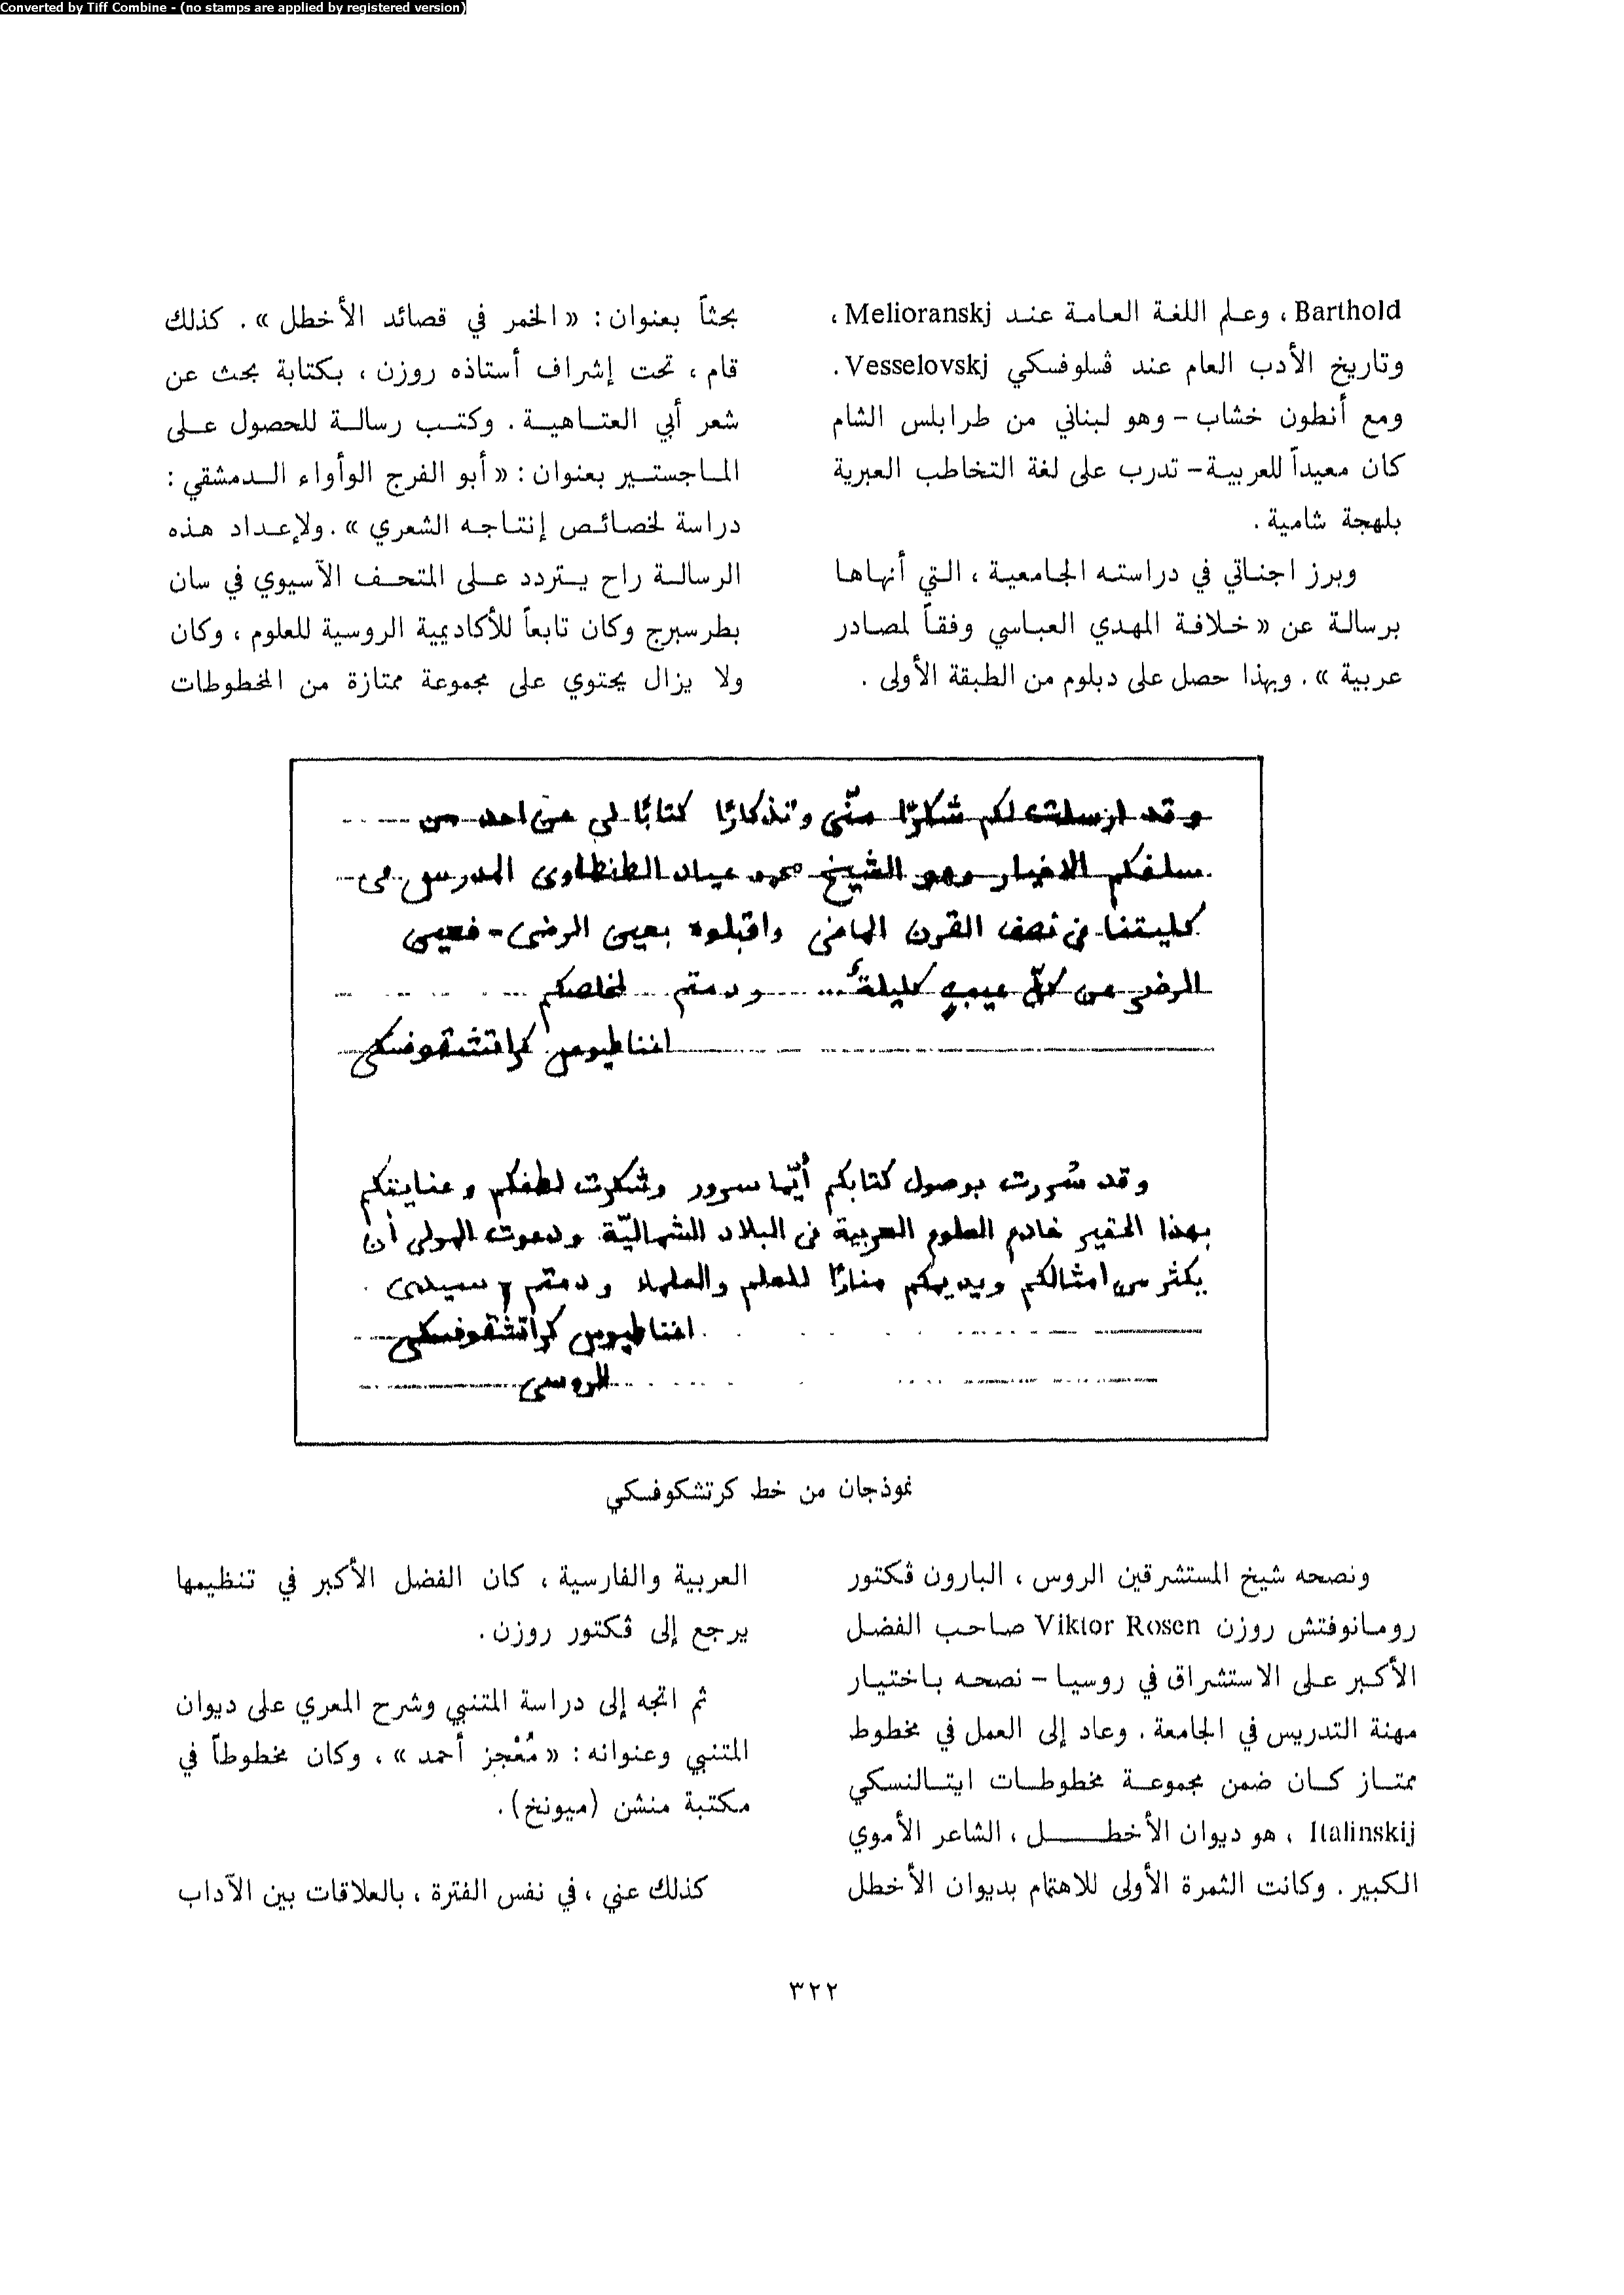 Converted by Tiff Combine - (no stamps are applied by registered version)
Barthold ، وعلم اللغة العامة عند Melioranskj ،
وتاريخ الأدب العام عند ڤسلوفسكي Vesselovskj .
ومع أنطون خشاب – وهو لبناني من طرابلس الشام
كان معيداً للعربية – تدرب على لغة التخاطب العبرية
بلهجة شامية .
وبرز اجناتي في دراسته الجامعية ، التي أنهاها
برسالة عن « خلافة المهدي العباسي وفقاً لمصادر
عربية » . وبهذا حصل على دبلوم من الطبقة الأولى .
بحثاً بعنوان : « الخمر في قصائد الأخطل » . كذلك
قام ، تحت إشراف أستاذه روزن ، بكتابة بحث عن
شعر أبي العتاهية . وكتب رسالة للحصول على
الماجستير بعنوان : « أبو الفرج الوأواء الدمشقي :
دراسة لخصائص إنتاجه الشعري » . ولإعداد هذه
الرسالة راح يتردد على المتحف الآسيوي في سان
بطرسبرج وكان تابعاً للأكاديمية الروسية للعلوم ، وكان
ولا يزال يحتوي على مجموعة ممتازة من المخطوطات
وقد ارسلت لكم شكرًا منّي وتذكارًا كتابًا لي عن احد من
سلفكم الاخيار وهو الشيخ محمد عياد الطنطاوى المدرس فى
كليتنا فى نصف القرن الماضى واقبلوه بعين الرضى - فعين
الرضى عن كلّ عيبٍ كليلةٌ ... ودمتم لمخلصكم
اغناطيوس كراتشقوفسكى
وقد سُررت بوصول كتابكم أيّما سرور وشكرت لطفكم وعنايتكم
بهذا الحقير خادم العلوم العربية فى البلاد الشماليّة ودعوت المولى أن
يكثر من امثالكم ويديمكم منارًا للعلم والعلماء ودمتم سيدى .
اغناطيوس كراتشقوفسكى
الروسى
نموذجان من خط كرتشكوفسكي
ونصحه شيخ المستشرقين الروس ، البارون ڤكتور
رومانوفتش روزن Viktor Rosen صاحب الفضل
الأكبر على الاستشراق في روسيا – نصحه باختيار
مهنة التدريس في الجامعة . وعاد إلى العمل في مخطوط
ممتاز كان ضمن مجموعة مخطوطات ايتالنسكي
Italinskij ، هو ديوان الأخطل ، الشاعر الأموي
الكبير . وكانت الثمرة الأولى للاهتمام بديوان الأخطل
العربية والفارسية ، كان الفضل الأكبر في تنظيمها
يرجع إلى ڤكتور روزن .
ثم اتجه إلى دراسة المتنبي وشرح المعري على ديوان
المتنبي وعنوانه : « مُعْجز أحمد » ، وكان مخطوطاً في
مكتبة منشن (ميونخ) .
كذلك عني ، في نفس الفترة ، بالعلاقات بين الآداب
٣٢٢